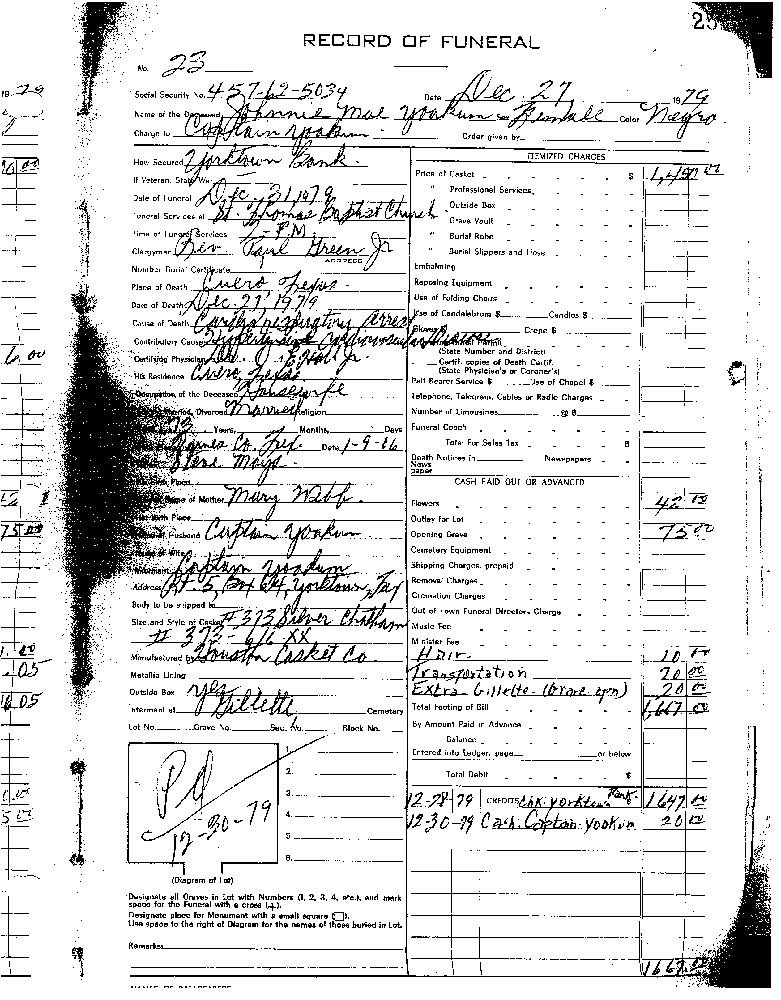 25
RECORD OF FUNERAL
No. 23
Social Security No. 457-62-5034 Date Dec. 27 1979
Name of the Deceased Johnnie Mae Yoakum Sex Female Color Negro
Charge to Captain Yoakum Order given by
How Secured Yorktown Bank.
If Veteran, State War
Date of Funeral Dec. 31, 1979
Funeral Services at St. Thomas Baptist Church
Time of Funeral Services P.M.
Clergyman Rev. Paul Green Jr
ADDRESS
Number Burial Certificate
Place of Death Cuero Texas
Date of Death Dec. 27 1979
Cause of Death Cardiorespiratory Arrest
Contributory Causes Hypertensive
Certifying Physician Jr.
His Residence Cuero Texas
Occupation of the Deceased Housewife
Married, Divorced Married Religion
73 Years, Months, Days
Karnes Co. Tex. Date 1-9-06
Steve Mays
Birth Place
Name of Mother Mary Webb
Birth Place
Husband Captain Yoakum
Captain Yoakum
Address Rt. 5, Box 64, Yorktown, Tex
Body to be shipped to
Size and Style of Casket # 373 Silver Chatham
# 373 - 6/6 XX
Manufactured by Houston Casket Co.
Metallic Lining
Outside Box yes
Interment at Gillette Cemetery
Lot No. Grave No. Sec. No. Block No.
Pd
12-30-79
1.
2.
3.
4.
5.
6.
(Diagram of Lot)
Designate all Graves in Lot with Numbers (1, 2, 3, 4, etc.), and mark
space for the Funeral with a cross (+).
Designate place for Monument with a small square (☐).
Use space to the right of Diagram for the names of those buried in Lot.
Remarks
ITEMIZED CHARGES
Price of Casket $ 00
" Professional Services
" Outside Box
" Grave Vault
" Burial Robe
" Burial Slippers and Hose
Embalming
Reposing Equipment
Use of Folding Chairs
Use of Candelabrum $ Candles $
Gloves $ Crepe $
(State Number and District)
Certif. copies of Death Certif.
(State Physician's or Coroner's)
Pall Bearer Service $ Use of Chapel $
Telephone, Telegram, Cables or Radio Charges
Number of Limousines @ $
Funeral Coach
Total For Sales Tax $
Death Notices in Newspapers
News
paper
CASH PAID OUT OR ADVANCED
Flowers 42 00
Outlay for Lot
Opening Grave 75 00
Cemetery Equipment
Shipping Charges, prepaid
Removal Charges
Cremation Charges
Out of Town Funeral Directors Charge
Music Fee
Minister Fee
Hair 10 00
Transportation 20 00
Extra Gillette (Grave opn) 20 00
Total Footing of Bill 1,667 00
By Amount Paid in Advance
Balance
Entered into Ledger, page or below
Total Debit $
12-28-79 CREDITS Chk. Yorktown Bank 1647 00
12-30-79 Cash. Captain Yoakum 20 00
1667.00